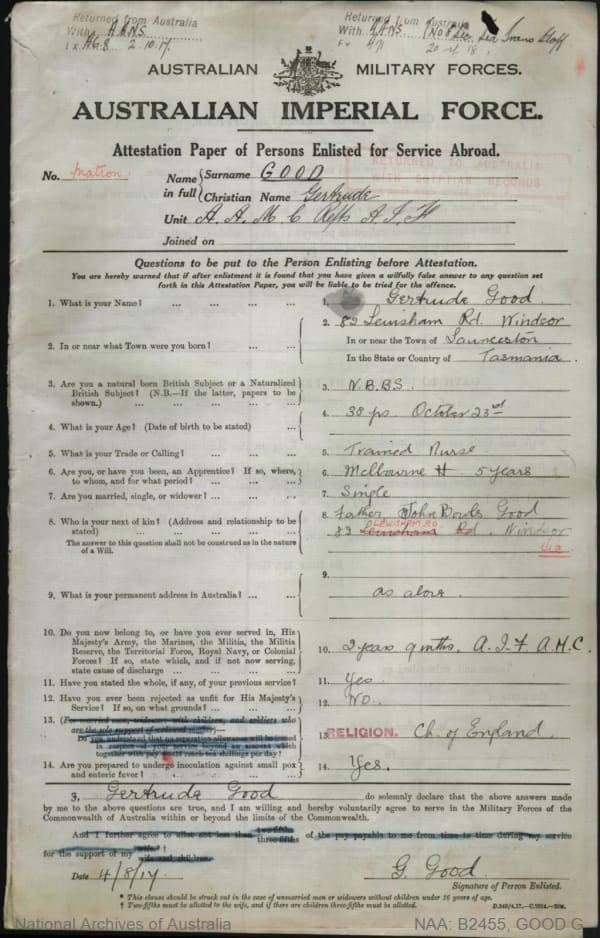 Returned from Australia
With A.A.N.S.
Lx. A68 2.10.17.
Returned from Australia
With A.A.N.S. (No 8 Sec Sea Trans Staff
20 18
AUSTRALIAN MILITARY FORCES.
AUSTRALIAN IMPERIAL FORCE.
Attestation Paper of Persons Enlisted for Service Abroad.
RETURNED TO AUSTRALIA
WITH EGYPTIAN RECORDS
No. Matron Name in full { Surname GOOD
Christian Name Gertrude
Unit A.A.M.C Refts A.I.F
Joined on
Questions to be put to the Person Enlisting before Attestation.
You are hereby warned that if after enlistment it is found that you have given a wilfully false answer to any question set
forth in this Attestation Paper, you will be liable to be tried for the offence.
1. What is your Name? ... ... ... ... 1. Gertrude Good.
2. In or near what Town were you born? ... ... 2. 82 Lewisham Rd Windsor
In or near the Town of Launceston
In the State or Country of Tasmania.
3. Are you a natural born British Subject or a Naturalized
British Subject? (N.B.—If the latter, papers to be
shown.) ... ... ... ... ... 3. N.B.B.S.
4. What is your Age? (Date of birth to be stated) ... 4. 38 yrs. October 23rd
5. What is your Trade or Calling? ... ... ... 5. Trained Nurse
6. Are you, or have you been, an Apprentice? If so, where,
to whom, and for what period? ... ... ... 6. Melbourne H 5 years
7. Are you married, single, or widower? ... ... ... 7. Single
8. Who is your next of kin? (Address and relationship to be
stated) ... ... ... ... ...
The answer to this question shall not be construed as in the nature
of a Will.
8. Father, John Bowls Good
LEWISHAM RD
82 Lewisham Rd. Windsor
Vic
9. What is your permanent address in Australia? ... ... 9. as above.
10. Do you now belong to, or have you ever served in, His
Majesty's Army, the Marines, the Militia, the Militia
Reserve, the Territorial Force, Royal Navy, or Colonial
Forces? If so, state which, and if not now serving,
state cause of discharge ... ... ... 10. 2 years 9 mths. A.I.F A.M.C.
11. Have you stated the whole, if any, of your previous service? 11. Yes
12. Have you ever been rejected as unfit for His Majesty's
Service? If so, on what grounds? ... ... ... 12. No.
13. (For married men, widowers with children, and soldiers who
are the sole support of widowed mother)—
Do you understand that no separation allowance will be issued
in respect of your service beyond an amount which
together with pay would reach ten shillings per day?
13. RELIGION. Ch. of England
14. Are you prepared to undergo inoculation against small pox
and enteric fever? ... ... ... ... 14. Yes.
I, Gertrude Good do solemnly declare that the above answers made
by me to the above questions are true, and I am willing and hereby voluntarily agree to serve in the Military Forces of the
Commonwealth of Australia within or beyond the limits of the Commonwealth.
And I further agree to allot not less than two-fifths three-fifths of the pay payable to me from time to time during my service
for the support of my wife † wife and children.
Date 4/8/17 G. Good.
Signature of Person Enlisted.
* This clause should be struck out in the case of unmarried men or widowers without children under 16 years of age.
† Two-fifths must be allotted to the wife, and if there are children three-fifths must be allotted.
National Archives of Australia NAA: B2455, GOOD G